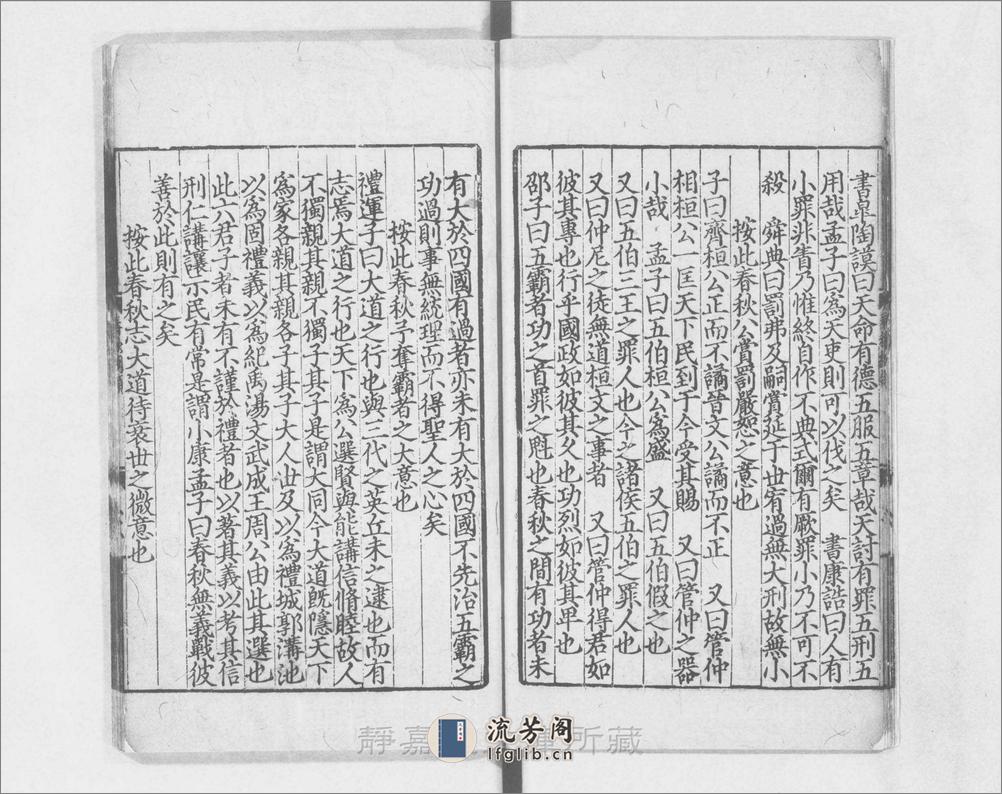 書臯陶謨曰天命有德五服五章哉天討有罪五刑五
用哉孟子曰爲天吏則可以伐之矣　書康誥曰人有
小罪非眚乃惟終自作不典式爾有厥罪小乃不可不
殺　舜典曰罰弗及嗣賞延于世宥過無大刑故無小
按此春秋公賞罰嚴恕之意也
子曰齊桓公正而不譎晉文公譎而不正　又曰管仲
相桓公一匡天下民到于今受其賜　又曰管仲之器
小哉　孟子曰五伯桓公爲盛　又曰五伯假之也
又曰五伯三王之罪人也今之諸侯五伯之罪人也
又曰仲尼之徒無道桓文之事者　又曰管仲得君如
彼其專也行乎國政如彼其久也功烈如彼其卑也
邵子曰五霸者功之首罪之魁也春秋之間有功者未
有大於四國有過者亦未有大於四國不先治五霸之
功過則事無統理而不得聖人之心矣
按此春秋予奪霸者之大意也
禮運子曰大道之行也與三代之英丘未之逮也而有
志焉大道之行也天下爲公選賢與能講信脩睦故人
不獨親其親不獨子其子是謂大同今大道既隱天下
爲家各親其親各子其子大人世及以爲禮城郭溝池
以爲固禮義以爲紀禹湯文武成王周公由此其選也
此六君子者未有不謹於禮者也以著其義以考其信
刑仁講讓示民有常是謂小康孟子曰春秋無義戰彼
善於此則有之矣
按此春秋志大道待衰世之微意也
靜嘉所藏
流芳阁
lfglib.cn